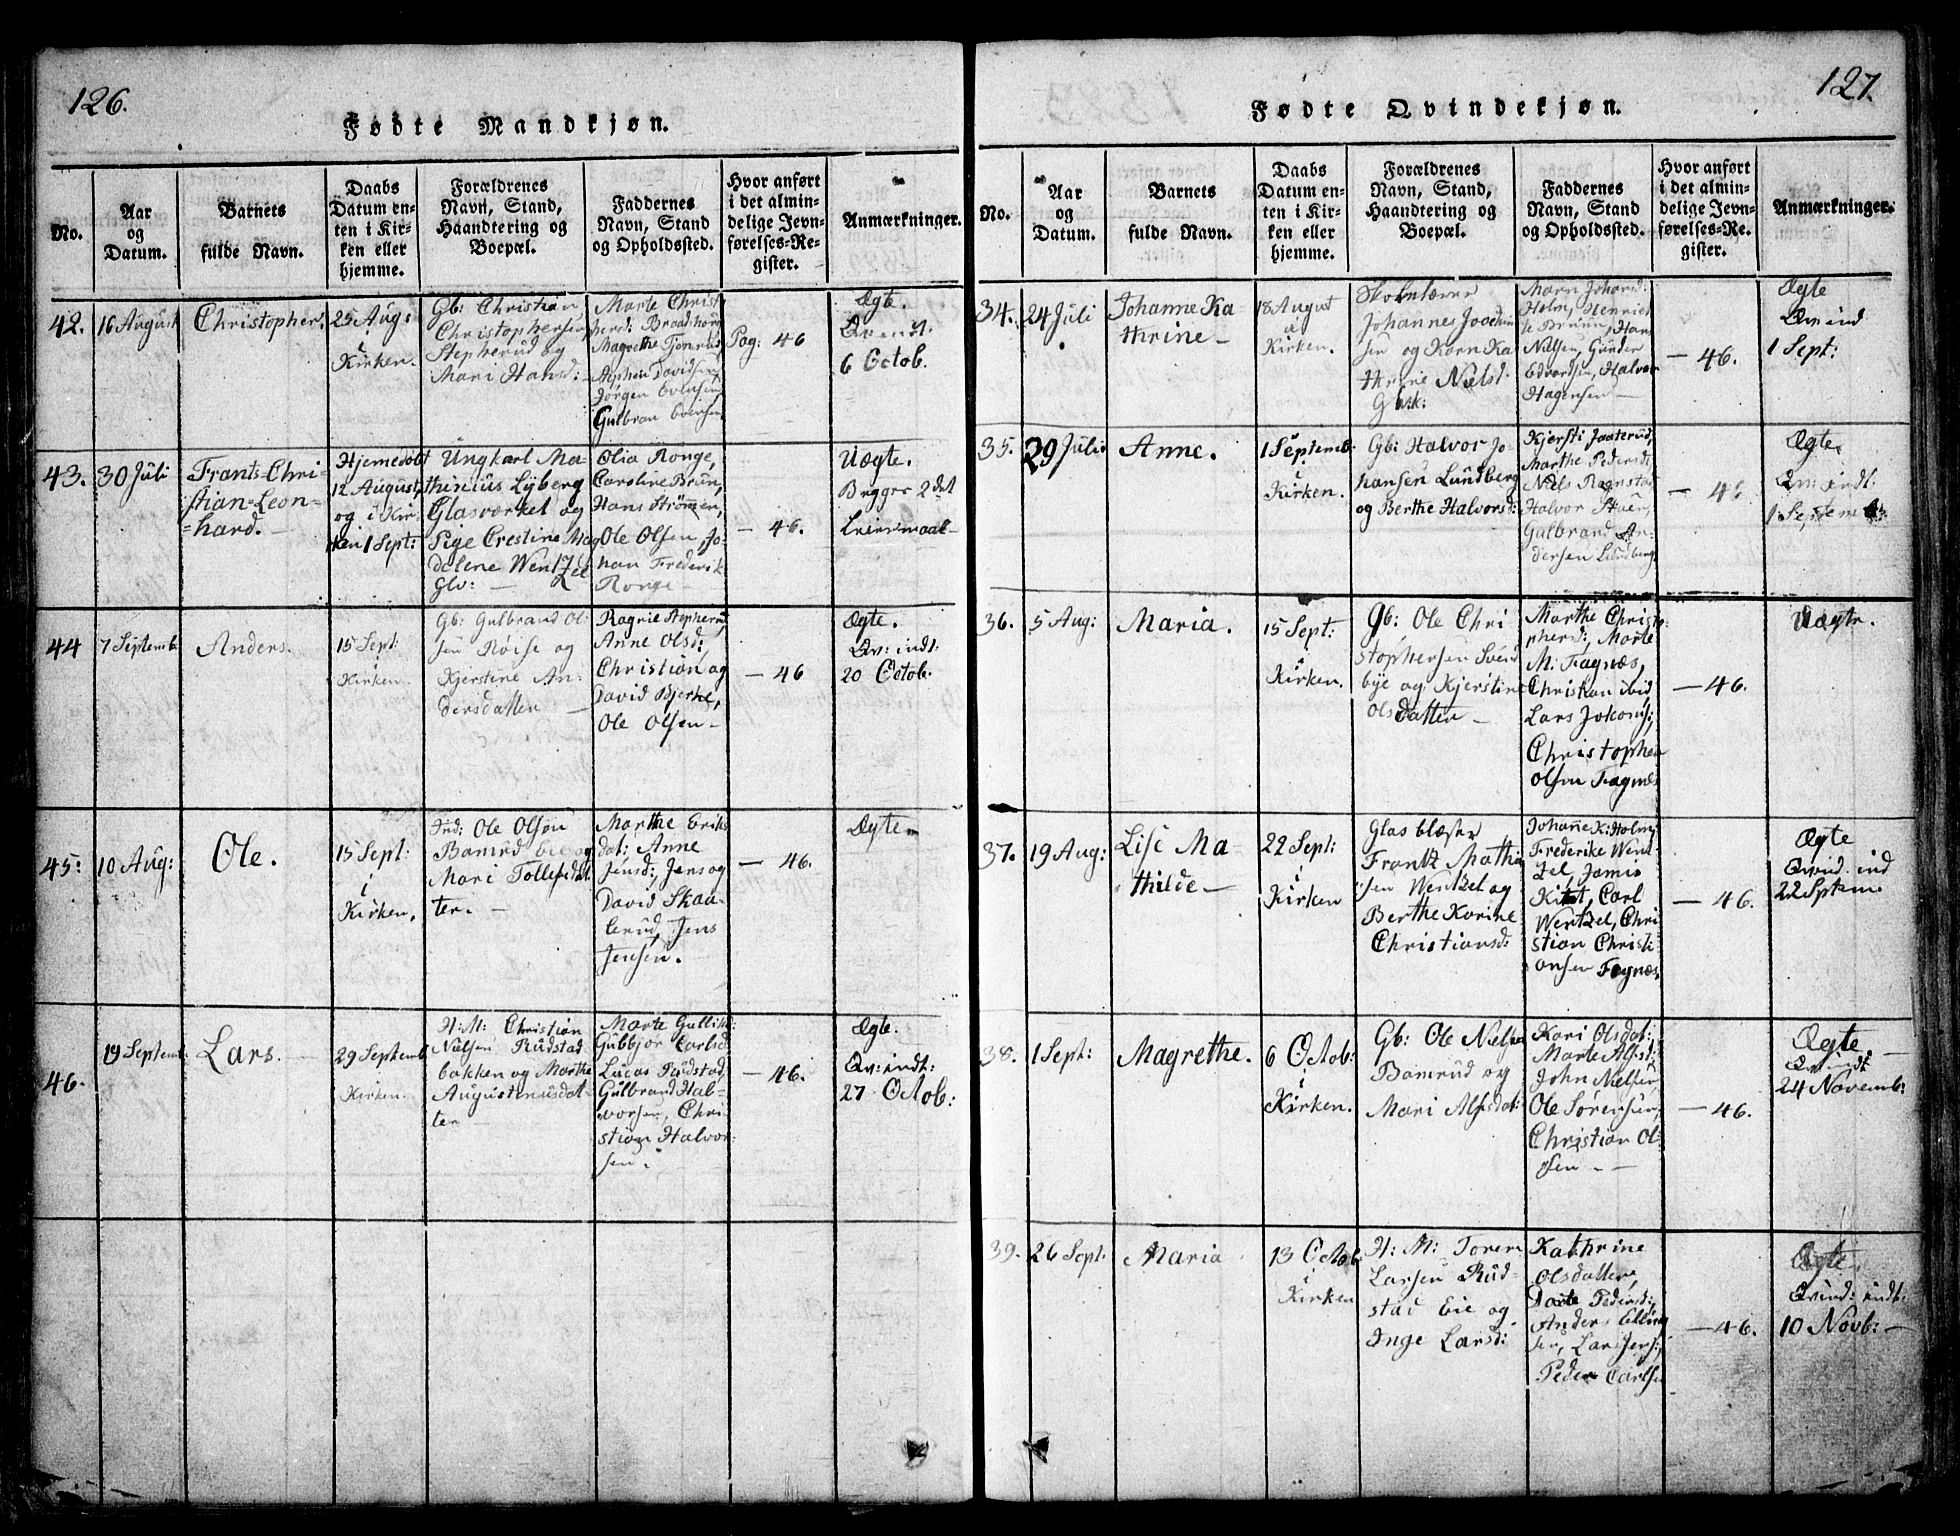 126.
Fødte Mandkjøn.
No.
Aar
og
Datum.
Barnets
fulde Navn.
Daabs
Datum en-
ten i Kir-
ken eller
hjemme.
Forældrenes
Navn, Stand,
Haandtering og
Boepæl.
Faddernes
Navn, Stand
og Opholdssted.
Hvor anført
i det almin-
delige Jevn-
førelses-Re-
gister.
Anmærkninger.
42.
16 August
Christopher.
25 Aug:
i
Kirken.
Gb: Christian
Christophersen
Stepherud og
Mari Hansd:
Marte Christ
hersd:
Magrethe
Davidsen,
Jørgen Evensen
Gulbran Evensen
Pag: 46
Ægte.
6 Octob.
43.
30 Juli
Frants-Chri-
stian-Leon-
hard.
Hjemedøbt
12 August,
og i Kir-
ken 1 Sept:
Ungkarl Ma-
thinius Lyberg
Glasværket og
Pige Crestine Mag
delene Wentzel
Glv:
Olia Ronge,
Caroline Brun,
Hans Strømmen,
Ole Olsen, Jo-
han Frederik
Ronge
— 46.
Uægte.
Bygger 2det
Leiermaal
44
7 Septemb
Anders.
15 Sept
i
Kirken.
Gb: Gulbrand Ol-
sen Røise og
Kjerstine An-
dersdatten
Ragnie Stopherud
Anne Olsd:
Christian og
David Bjerke,
Ole Olsen
— 46
Ægte.
Qv: indt:
20 Octob.
45:
10 Aug:
Ole.
15 Sept:
i
Kirken.
Ind: Ole Olsøn
Bamrud Eie og
Mari Tollefsdat
ter.
Marthe Eriks
dat: Anne
Jensd:, Jens og
David Skaa-
lerud, Jens
Jensen.
— 46.
Ægte
46.
19 Septemb.
Lars.
29 Septemb
Kirken.
H: M: Christian
Nielsen Rudstad
bakken og Marthe
Augustinusdat-
ter
Marte Gullik:
Gubbjør Carlsd
Lucas Rudstad,
Gulbrand Hal-
vorsen, Chri-
stian Halvor
sen.
— 46.
Ægte.
Qv: indt:
27 Octob:
127.
Fødte Qvindekjøn.
No.
Aar
og
Datum.
Barnets
fulde Navn.
Daabs
Datum en-
ten i Kir-
ken eller
hjemme.
Forældrenes
Navn, Stand,
Haandtering og
Boepæl.
Faddernes
Navn, Stand
og Opholdssted.
Hvor anført
i det almin-
delige Jevn-
førelses-Re-
gister.
Anmærkninger.
34.
24 Juli
Johanne Ka-
thrine
18 August
i
Kirken.
Skolelærer
Johannes Joachim
sen og Karn Ka
thrine Nielsd.
Marn Johansd
Holm, Henriet
te Brunn, Hans
Nilsen, Gunder
Edvardsen, Halvor
Hagensen
— 46.
Ægte
Qv ind
1 Sept:
35.
29 Juli
Anne.
1 Septemb:
i
Kirken.
Gb: Halvor Jo-
hansen Lundberg
og Berthe Halvorsd:
Kjersti Jaaterud,
Marthe Pedersd:
Niels
Halvor
Gulbrand An-
dersen Lundberg
— 46
Ægte.
Qv: indt
1 Septemb
36.
5 Aug:
Maria.
15 Sept:
i
Kirken.
Gb: Ole Chri
stophersen Svend
bye og Kjerstine
Olsdatter
Marthe Christo-
phersd, Marte
M: Fagnæs,
Christian ibid
Lars Jokoms:,
Christopher
Olsøn Fagnæs
— 46.
Uægte.
37.
19 Aug:
Lise Ma-
thilde
22 Sept:
i
Kirken
Glasblæser
Frantz Mathi
sen Wentzel og
Berthe Karine
Christiansd:
Johanne K: Holm,
Frederike Went-
zel, Jamis
Carl
Wentzel, Chri
stian Christi
ansen Fagnæs.
— 46.
Ægte
Qvind. ind
22 Sptem.
38.
1 Sept:
Magrethe.
6 Octob:
i
Kirken.
Gb: Ole Nielsen
Bamrud og
Mari Alfsdat:
Kari Olsdat:
Marte Alfsd:
John Nielsen,
Ole Sørensen,
Christian Ol-
sen
— 46.
Ægte
Qv indt
24 Novemb:
39.
26 Sept:
Maria
13 Octob
i
Kirken
H: M: Toren
Larsen Rud-
stad Eie og
Inge Larsd:
Kathrine
Olsdatter,
Dorte Pedersd:,
Anders Elling
sen, Lars Jens:,
Peder Carlsen
— 46.
Ægte
Qvind: indt:
10 Novb: